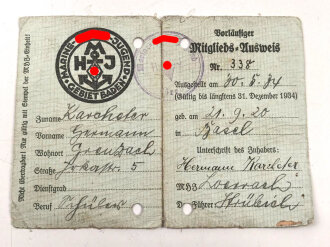 Nicht übertragbar! Nur gültig mit Stempel der M.H.J.-Einheit!
MARINE JUGEND
HJ
GEBIET BADEN
Zuname Karcheter
Vorname Hermann
Wohnort Grenzach
Straße 5
Dienstgrad
Beruf Schüler
Vorläufiger
Mitglieds-Ausweis
Nr. 338
Ausgestellt am 30. 5. 34
(Gültig bis längstens 31. Dezember 1934)
geb. am 21. 9. 20
in Basel
Unterschrift des Inhabers:
Hermann Karcheter
Lörrach
Führer